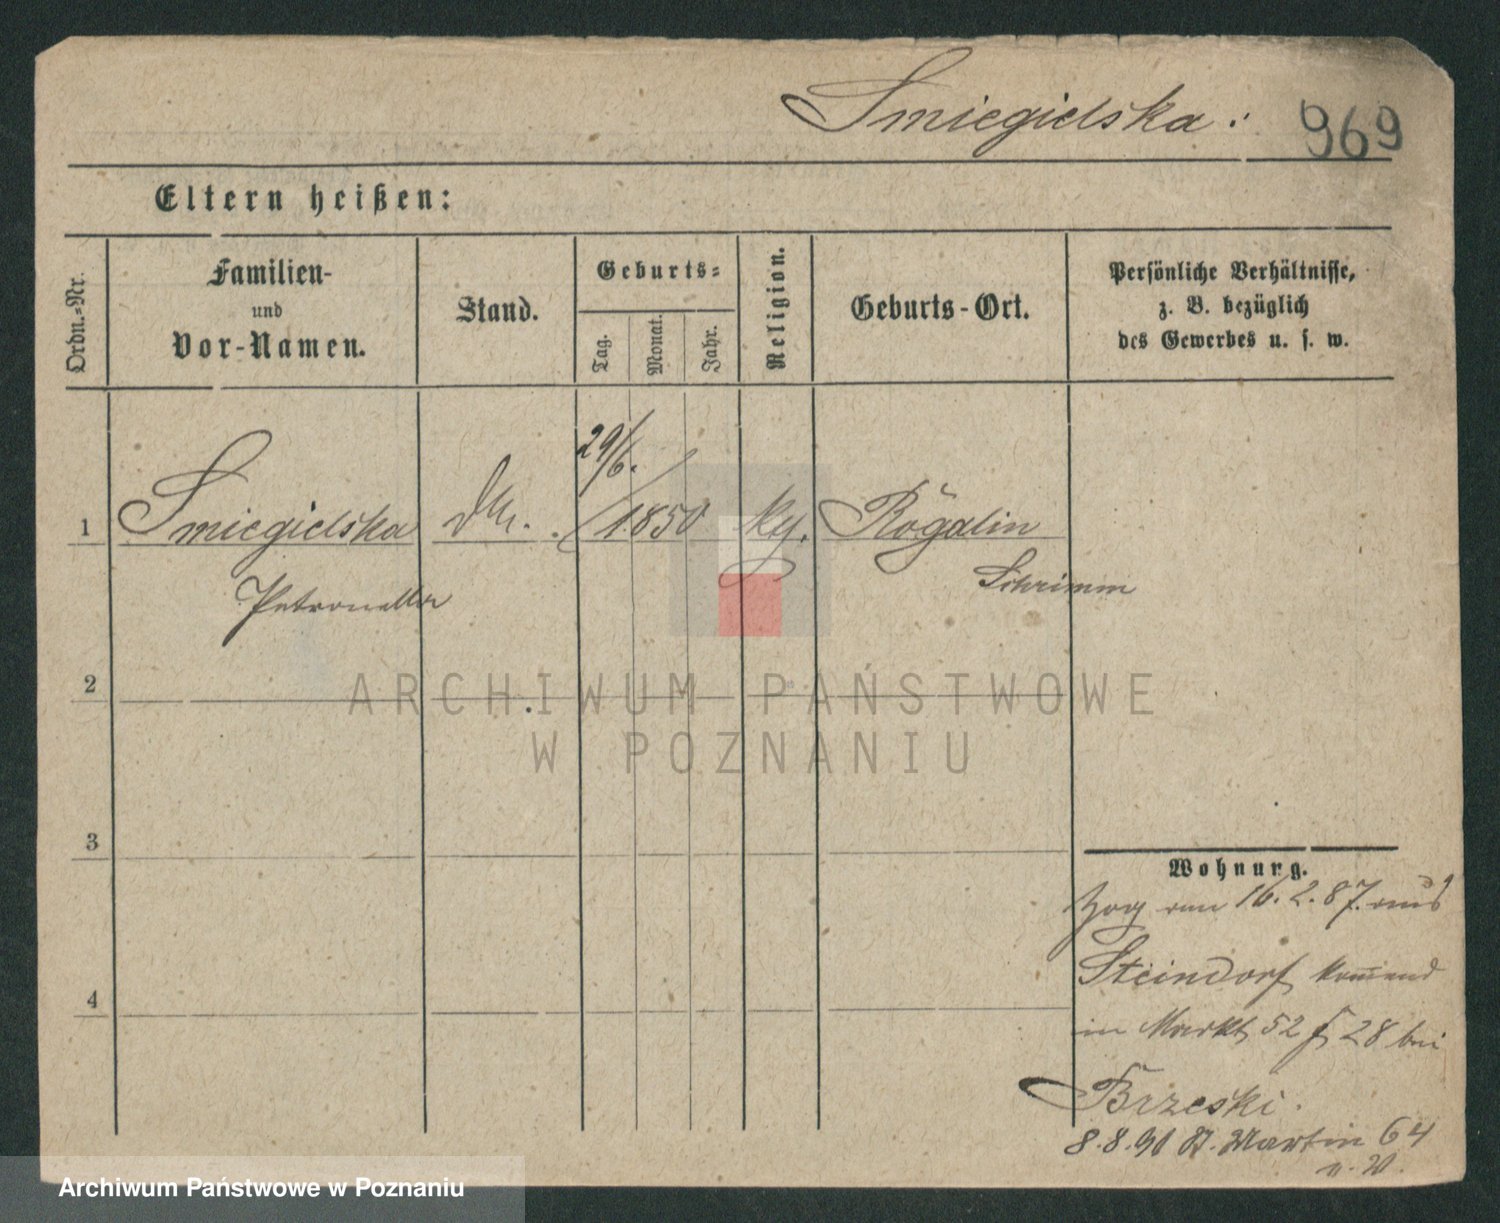 Smiegielska.
969
Eltern heißen:
Ordn.-Nr.
Familien-
und
Vor-Namen.
Stand.
Geburts-
Tag.
Monat.
Jahr.
Religion.
Geburts-Ort.
Persönliche Verhältnisse,
z. B. bezüglich
des Gewerbes u. s. w.
29/6.
1 Smiegielska 1850 kth. Rogalin
Petronella Schrimm
2
3
4
Wohnung.
Zog am 16.2.87. aus
Steindorf kommend
in Markt 52 28 bei
Brzeski.
8.8.90 St. Martin 64
ARCHIWUM PAŃSTWOWE
W POZNANIU
Archiwum Państwowe w Poznaniu